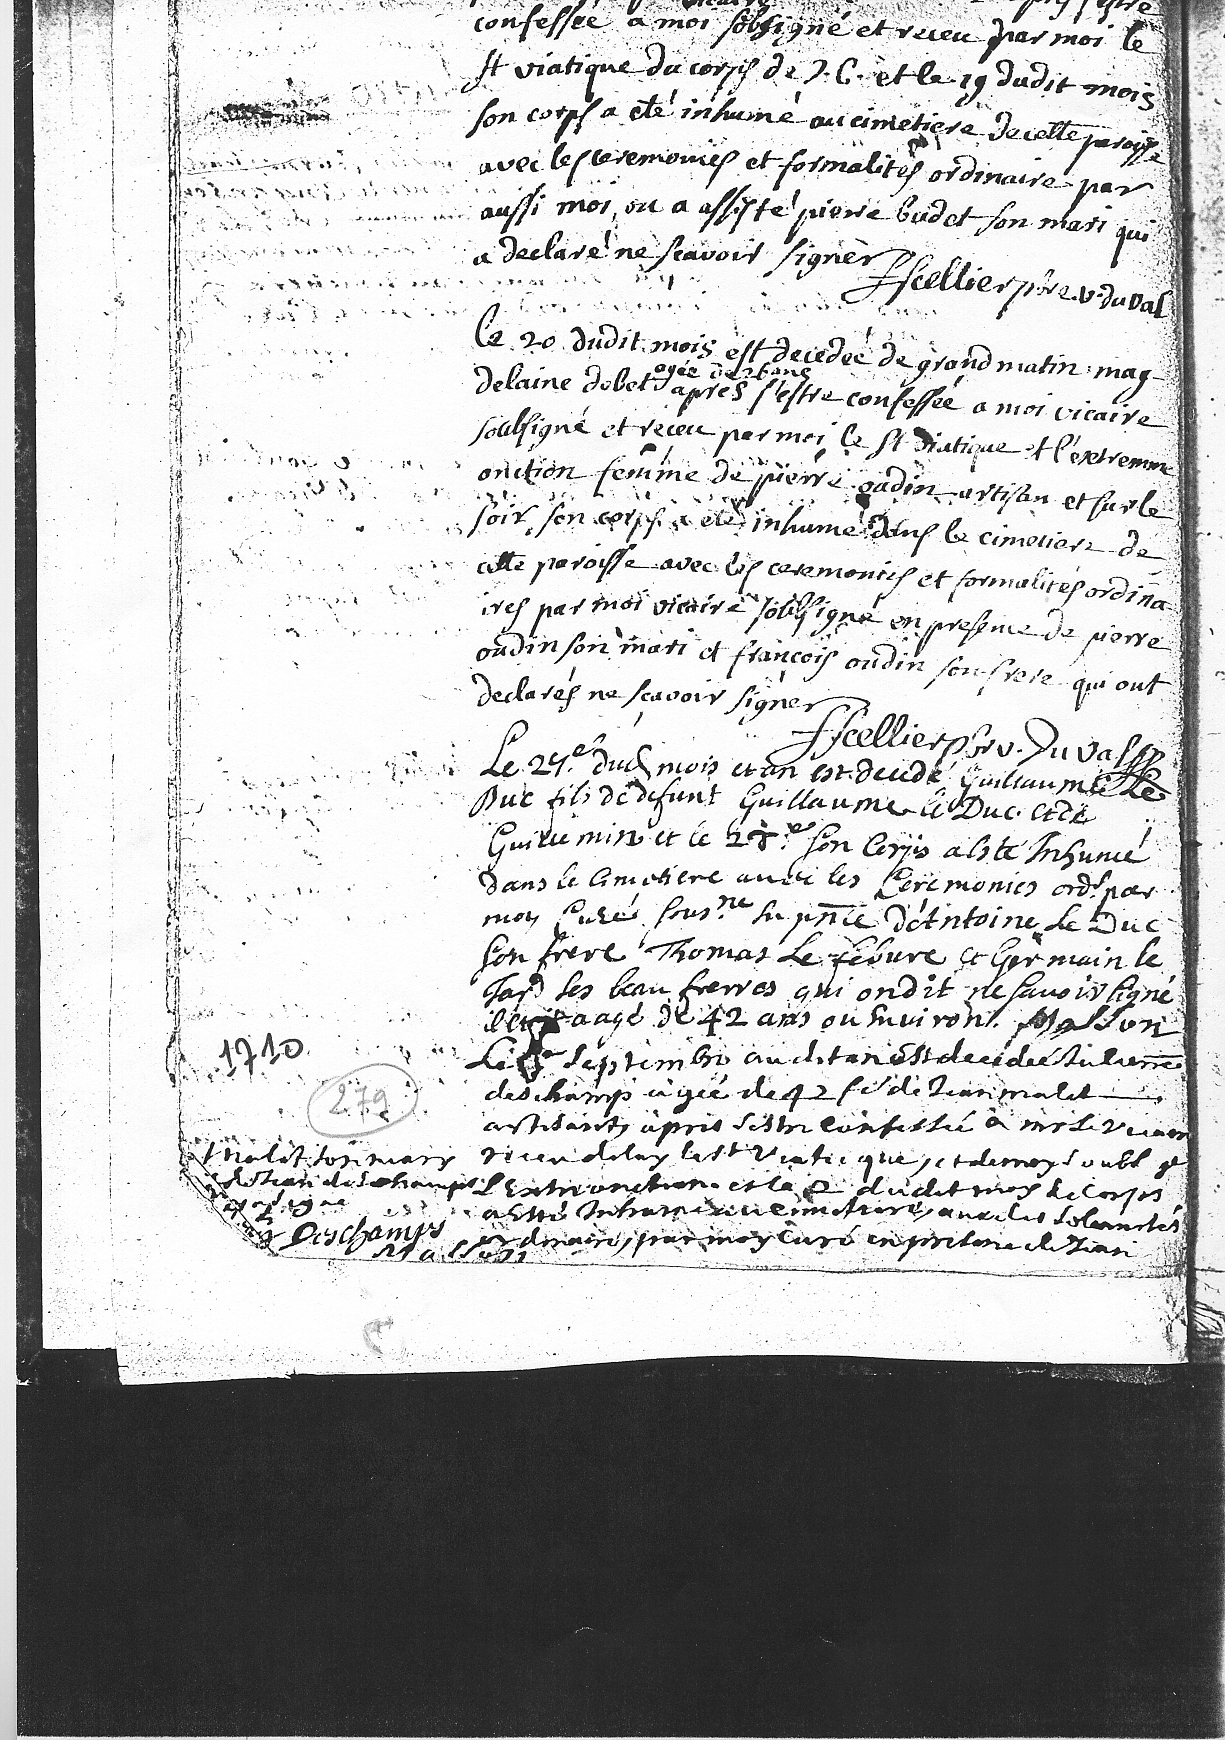 confessée a moi sobsigné et receu par moi le
st viatique du corps de J. C. et le 19 dudit mois
son corps a eté inhumé au cimetiere de cette paroisse
avec les ceremonies et formalités ordinaire par
aussi moi, ou a assisté pierre budet son mari qui
a declaré ne scavoir signer
fscellier pbre v. du val
le 20 dudit mois est decedée de grand matin mag-
agée de 26 ans
delaine debet apres s'estre confessée a moi vicaire
sobsigné et receu par moi le st viatique et l'extremme
onction femme de pierre oudin artisan et sur le
soir son corps a eté inhumé dans le cimetiere de
cette paroisse avec les ceremonies et formalités ordina
ires par moi vicaire sobsigné en presence de pierre
oudin son mari et francois oudin son frere qui ont
declarés ne scavoir signer
fscellier pbr v. Du val
Le 27.e dud mois et an est decedé Guillaume Le
Duc fils de defunt Guillaume le Duc et de
Guillemin et le 28.e son corps a este Inhumé
Dans le Cimetiere avec les Ceremonies ord.s par
moy Curé sous.ne en pnce d'Antoine Le Duc
son frere Thomas Le febure et Germain le
Tard ses beau frerres qui on dit ne savoir signé
aagé de 42 ans ou environ. Masson
1710
Le septembre audit an est decedée Julienne
deschamps agée de 42 fe de Jean malet
279
artisant apris s'estre confessée a mr le vicaire
receu de luy le st Viatic que, et de moy soubs gé
L'Extreonction et le 2 dudit mois le corps
a esté Inhumé au cimetiere, avec les solemnités
ordinaires, par moy Curé en presence de Jean
malet son mary
de Jean deschamps
Deschamps
Masson